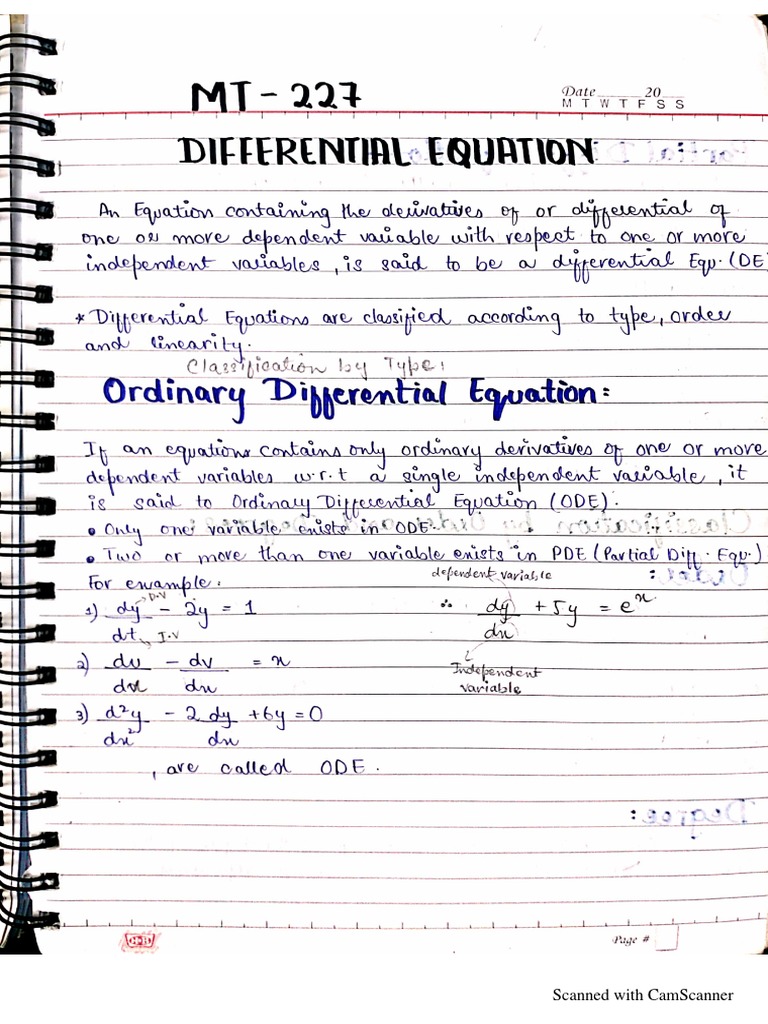 MT - 227
Date 20
M T W T F S S
DIFFERENTIAL EQUATION:
An Equation containing the derivatives of or differential of
one or more dependent variable with respect to one or more
independent variables, is said to be a differential Equ. (DE)
* Differential Equations are classified according to type, order
and linearity.
Classification by Type:
Ordinary Differential Equation:
If an equations contains only ordinary derivatives of one or more
dependent variables w.r.t a single independent variable, it
is said to Ordinary Differential Equation (ODE).
• Only one variable exists in ODE.
• Two or more than one variable exists in PDE (Partial Diff. Equ.)
For example:
dependent variable
1) dy/dt - 2y = 1
D.V
I.V
∴ dy/dx + 5y = e^x
Independent
variable
2) du/dx - dv/dx = x
3) d²y/dx² - 2 dy/dx + 6y = 0
, are called ODE.
Page #
Scanned with CamScanner